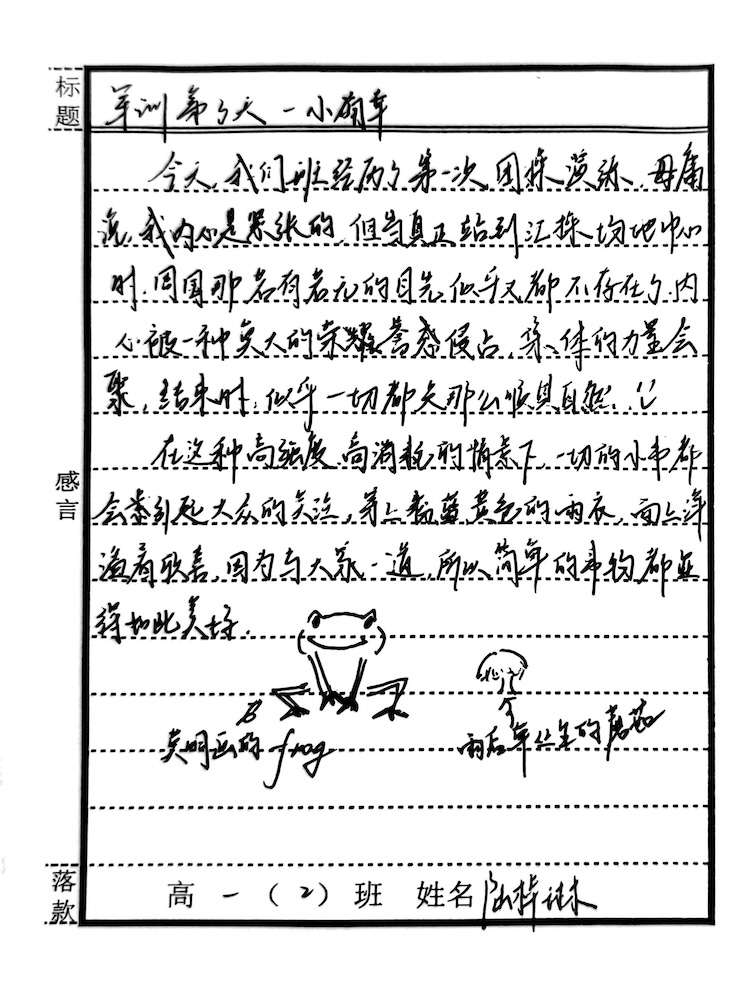 标题
军训第5天 - 小有车
今天,我们班经历了第一次团操演练,毋庸
说,我内心是紧张的,但当真正站到汇操场地中心
时,周围那若有若无的目光似乎又都不存在了,内
心被一种莫大的荣耀誉感侵占,集体的力量会
聚,结束时,似乎一切都是那么顺其自然!
感言
在这种高强度、高消耗的情景下,一切的小事都
会牵引起大众的关注,穿上蓝黄色的雨衣,面上洋
溢着欢喜,因为与大家一道,所以简单的事物都显
得如此美好.
莫明画的frog
雨后新生的蘑菇
落款
高一(2)班 姓名